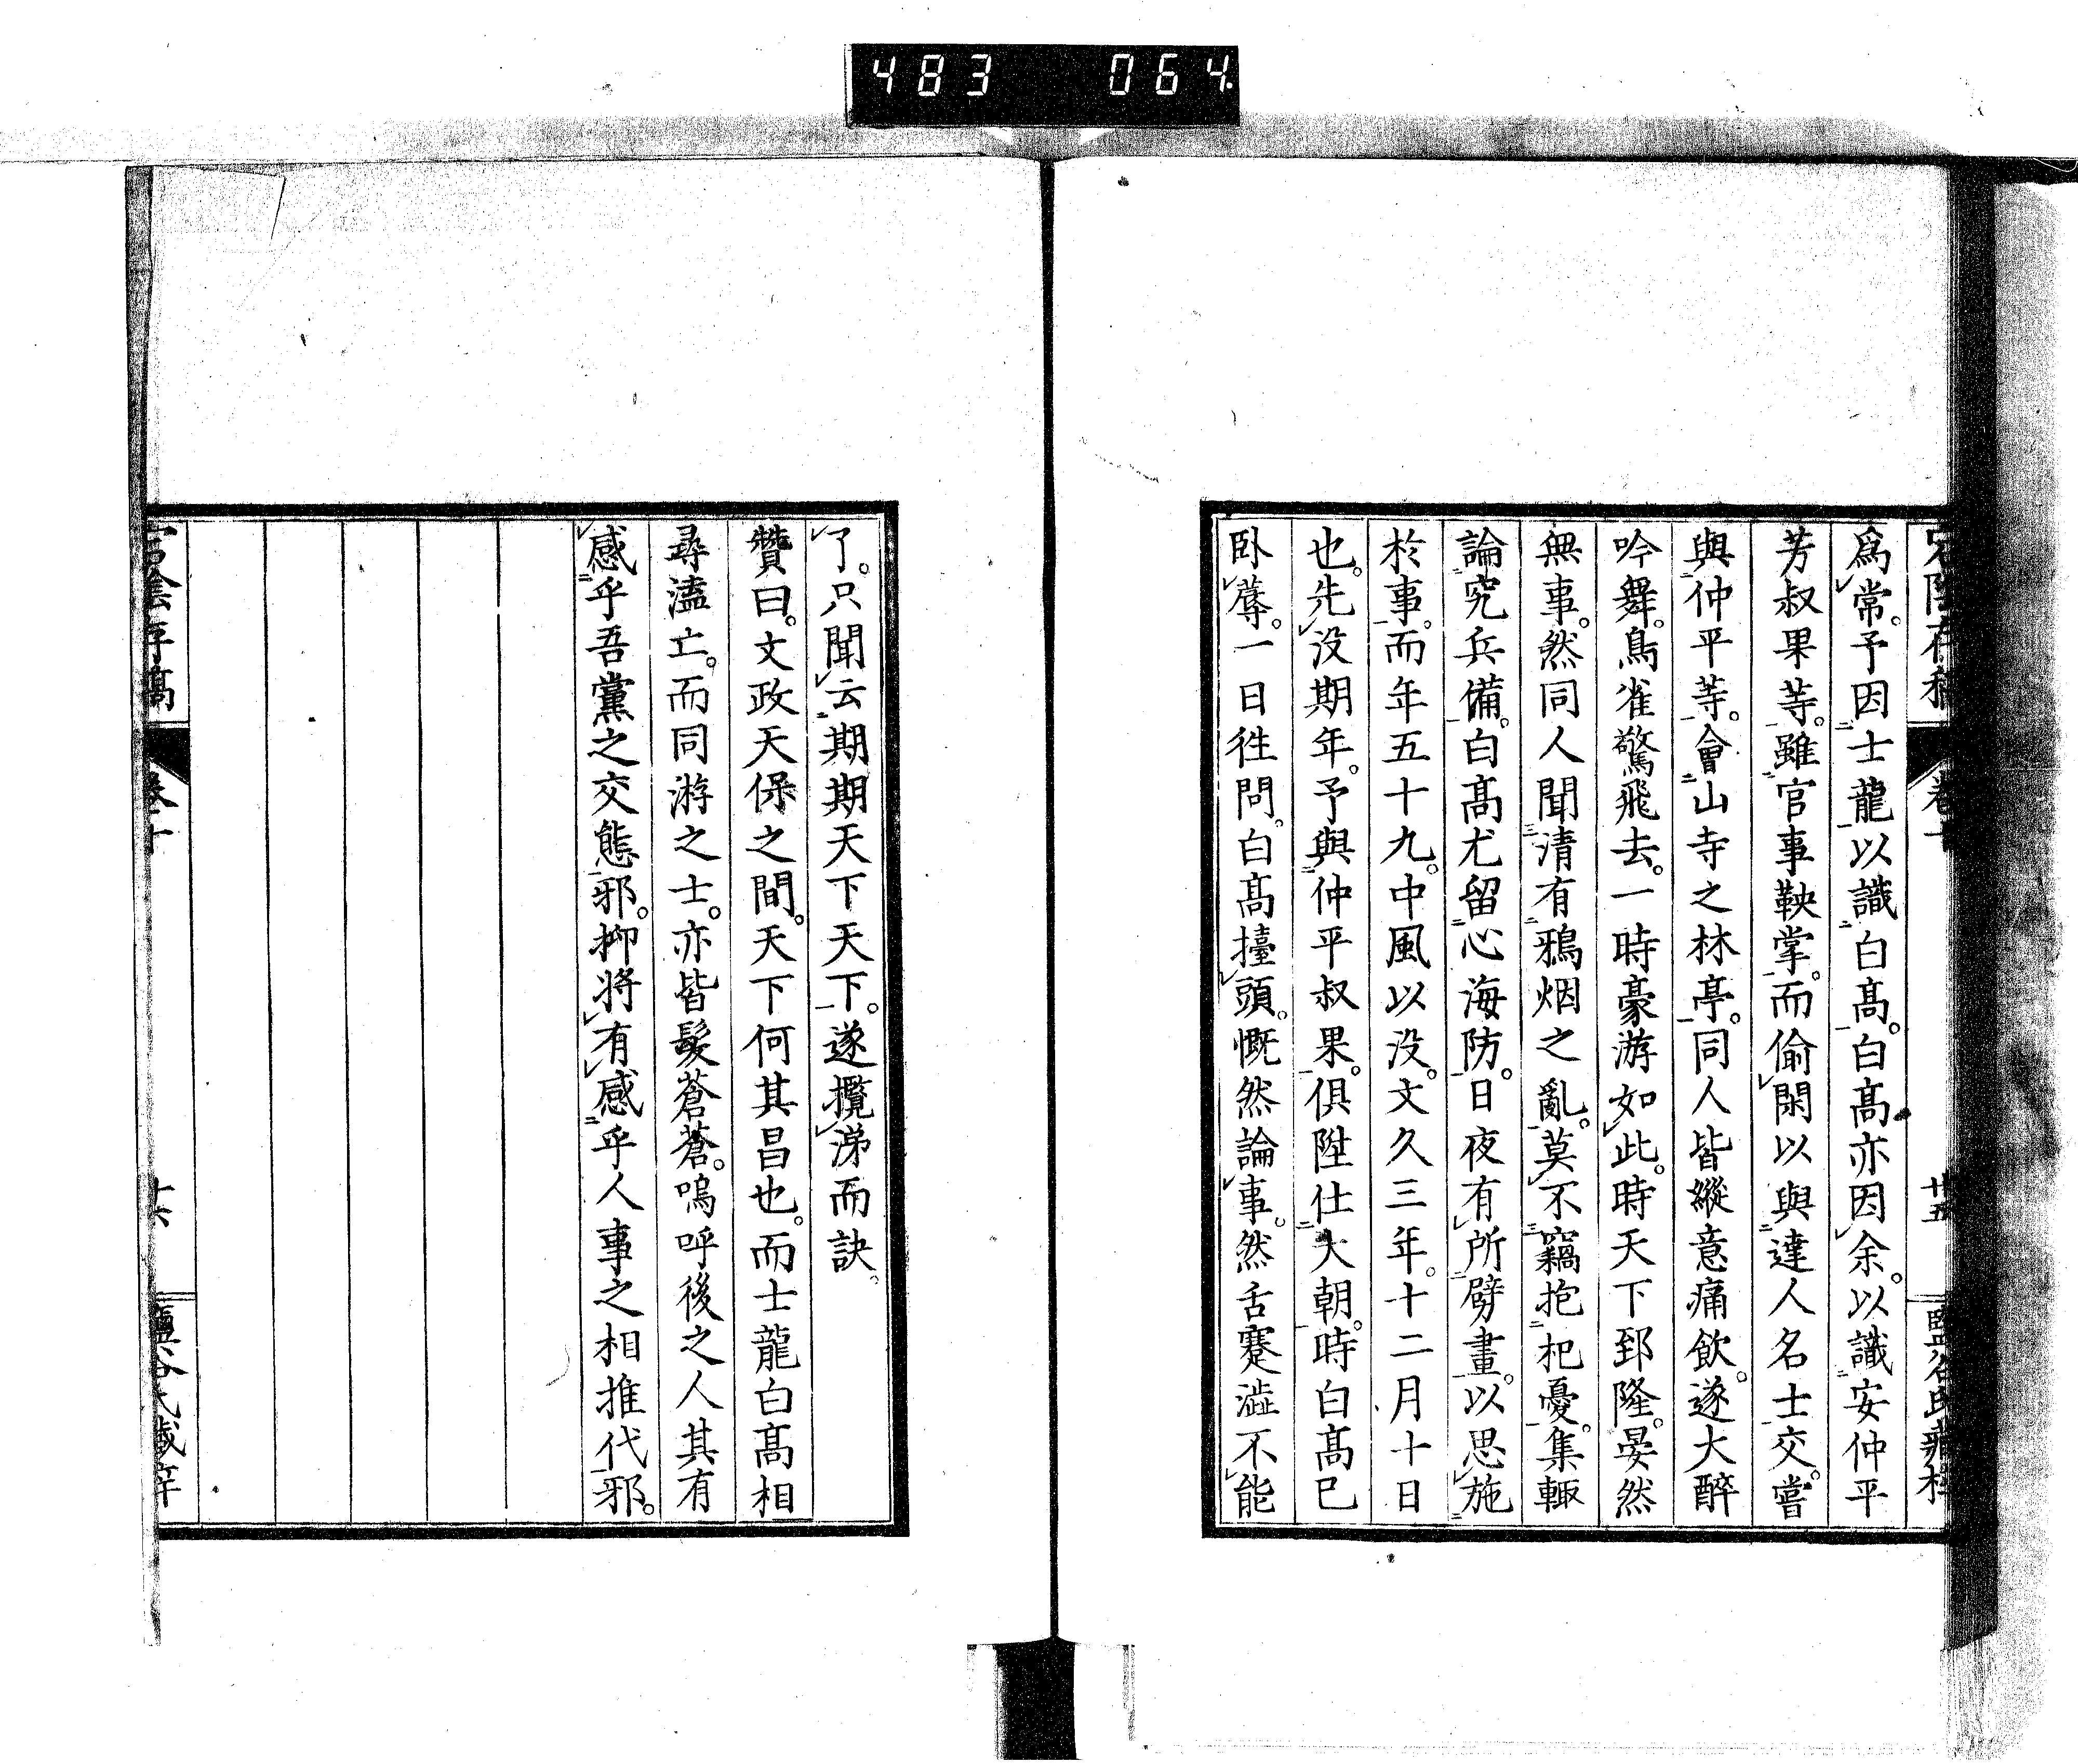 483 064
宕陰存稿 卷十 廿五 鹽谷氏藏梓
爲常。予因士龍以識白髙。白髙亦因余。以識安仲平
芳叔果等。雖官事鞅掌。而偷閑以與達人名士交。嘗
與仲平等。會山寺之林亭。同人皆縱意痛飲。遂大醉
吟舞。鳥雀驚飛去。一時豪游如此。時天下郅隆。晏然
無事。然同人聞清有鴉烟之亂。莫不竊抱杞憂。集輙
論究兵備。白髙尤留心海防。日夜有所劈畫。以思施
於事。而年五十九。中風以没。文久三年。十二月十日
也。先没期年。予與仲平叔果。俱陞仕大朝。時白髙已
卧蓐。一日徃問。白髙擡頭。慨然論事。然舌蹇澁不能
了。只聞云期期天下天下。遂攬涕而訣。
贊曰。文政天保之間。天下何其昌也。而士龍白髙相
尋溘亡。而同游之士。亦皆髮蒼蒼。嗚呼後之人其有
感乎吾黨之交態邪。抑將有感乎人事之相推代邪。
宕陰存稿 卷十 廿六 鹽谷氏藏梓